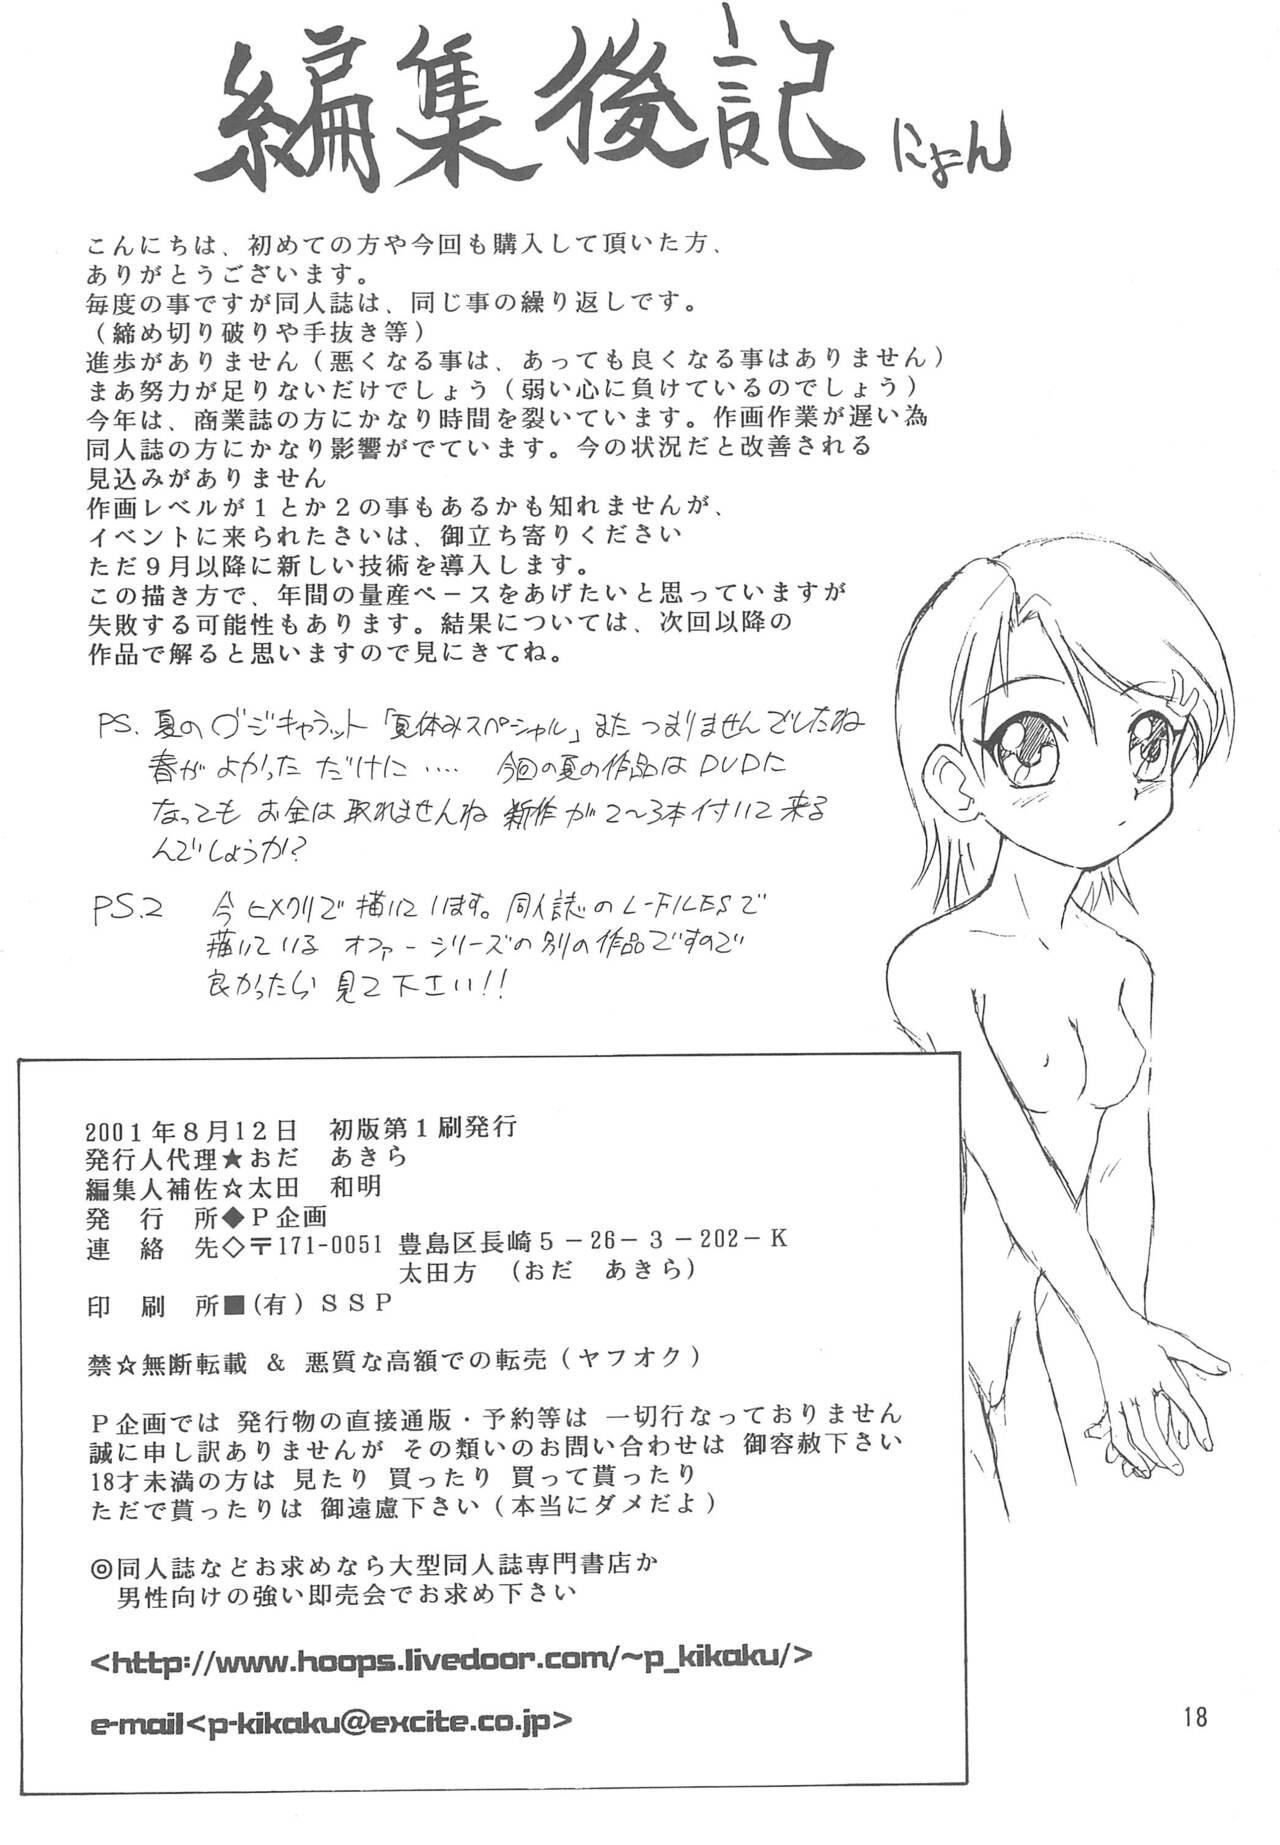 編集後記 にょん
こんにちは、初めての方や今回も購入して頂いた方、
ありがとうございます。
毎度の事ですが同人誌は、同じ事の繰り返しです。
（締め切り破りや手抜き等）
進歩がありません（悪くなる事は、あっても良くなる事はありません）
まあ努力が足りないだけでしょう（弱い心に負けているのでしょう）
今年は、商業誌の方にかなり時間を裂いています。作画作業が遅い為
同人誌の方にかなり影響がでています。今の状況だと改善される
見込みがありません
作画レベルが１とか２の事もあるかも知れませんが、
イベントに来られたさいは、御立ち寄りください
ただ９月以降に新しい技術を導入します。
この描き方で、年間の量産ペースをあげたいと思っていますが
失敗する可能性もあります。結果については、次回以降の
作品で解ると思いますので見にきてね。
PS. 夏のデジキャラット「夏休みスペシャル」またつまりませんでしたね
春がよかっただけに‥‥ 今回の夏の作品はDVDに
なってもお金は取れませんね 新作が2〜3本付いて来る
んでしょうか?
PS.2 今ヒメクリで描いています。同人誌のL-FILESで
描いているオファーシリーズの別の作品ですので
良かったら見て下さい!!
2001年８月12日　初版第１刷発行
発行人代理★おだ　あきら
編集人補佐☆太田　和明
発　行　所◆Ｐ企画
連　絡　先◇〒171-0051 豊島区長崎５－26－３－202－Ｋ
太田方　（おだ　あきら）
印　刷　所■(有)ＳＳＰ
禁☆無断転載 ＆ 悪質な高額での転売（ヤフオク）
Ｐ企画では 発行物の直接通版・予約等は 一切行なっておりません
誠に申し訳ありませんが その類いのお問い合わせは 御容赦下さい
18才未満の方は 見たり 買ったり 買って貰ったり
ただで貰ったりは 御遠慮下さい（本当にダメだよ）
◎同人誌などお求めなら大型同人誌専門書店か
男性向けの強い即売会でお求め下さい
<http://www.hoops.livedoor.com/~p_kikaku/>
e-mail<p-kikaku@excite.co.jp>
18